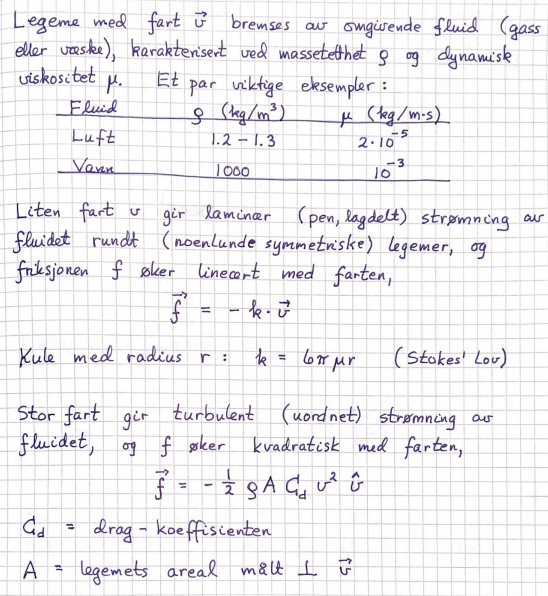 Legeme med fart v⃗ bremses av omgivende fluid (gass
eller væske), karakterisert ved massetetthet ρ og dynamisk
viskositet μ. Et par viktige eksempler:
Fluid ρ (kg/m³) μ (kg/m·s)
Luft 1.2 – 1.3 2·10⁻⁵
Vann 1000 10⁻³
Liten fart v gir laminær (pen, lagdelt) strømning av
fluidet rundt (noenlunde symmetriske) legemer, og
friksjonen f øker lineært med farten,
f⃗ = – k · v⃗
Kule med radius r : k = 6πμr (Stokes' Lov)
Stor fart gir turbulent (uordnet) strømning av
fluidet, og f øker kvadratisk med farten,
f⃗ = – ½ ρ A C_d v² v̂
C_d = drag-koeffisienten
A = legemets areal målt ⊥ v⃗